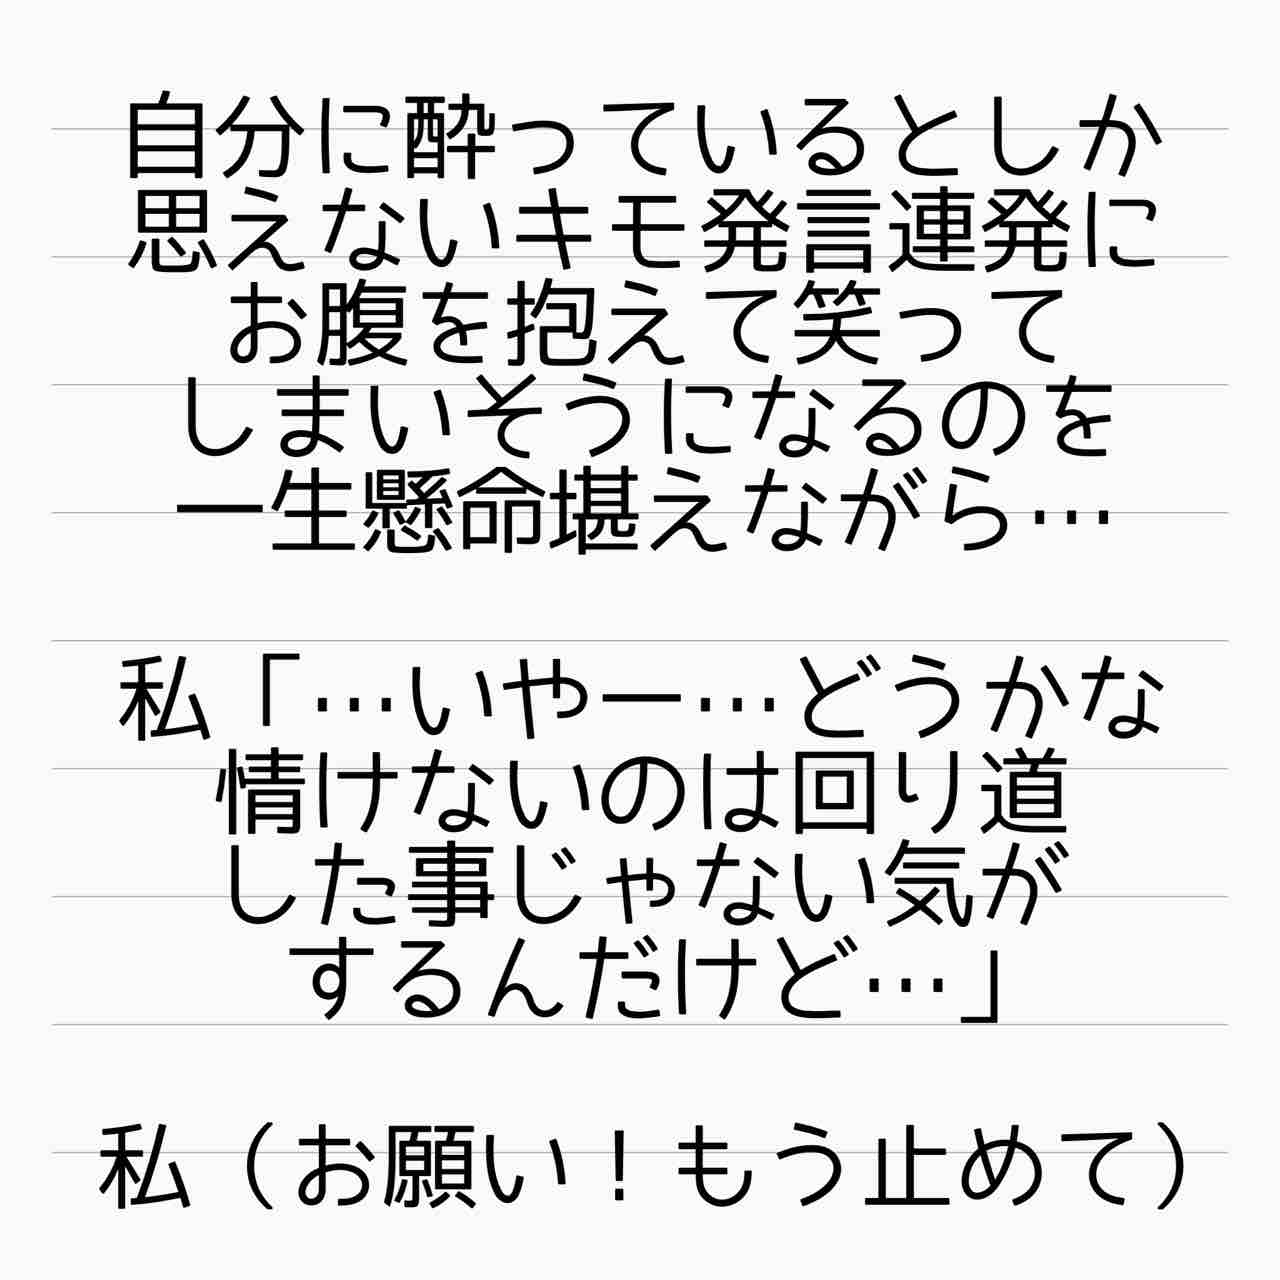 自分に酔っているとしか
思えないキモ発言連発に
お腹を抱えて笑って
しまいそうになるのを
一生懸命堪えながら…
私「…いやー…どうかな
情けないのは回り道
した事じゃない気が
するんだけど…」
私（お願い！もう止めて）